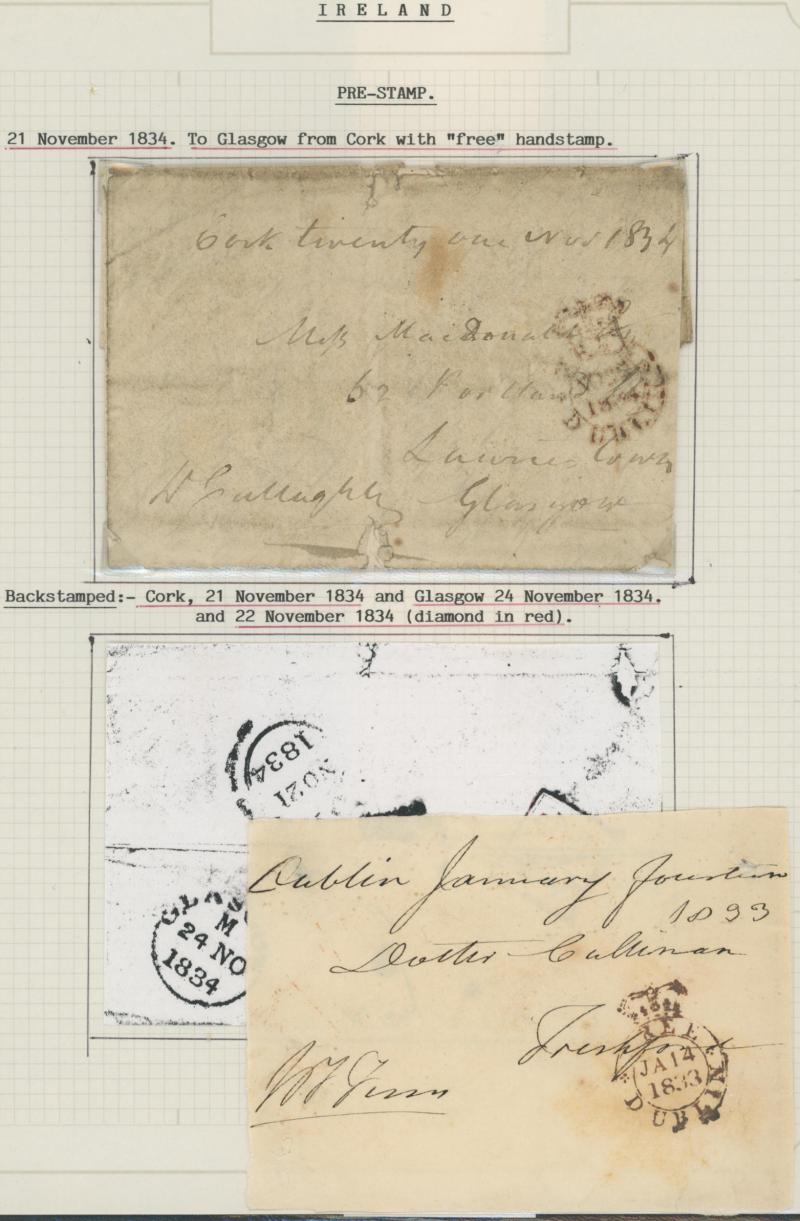 IRELAND
PRE-STAMP.
21 November 1834. To Glasgow from Cork with "free" handstamp.
Cork twenty one Nov 1834
Miss MacDonald
62 Portland
Glasgow
Backstamped:- Cork, 21 November 1834 and Glasgow 24 November 1834.
and 22 November 1834 (diamond in red).
1834
NO21
GLASG
M
24 NO
1834
Dublin January fourteen
1833
Doctor Cullinan
Freshford
FREE
JA 14
1833
DUBLIN